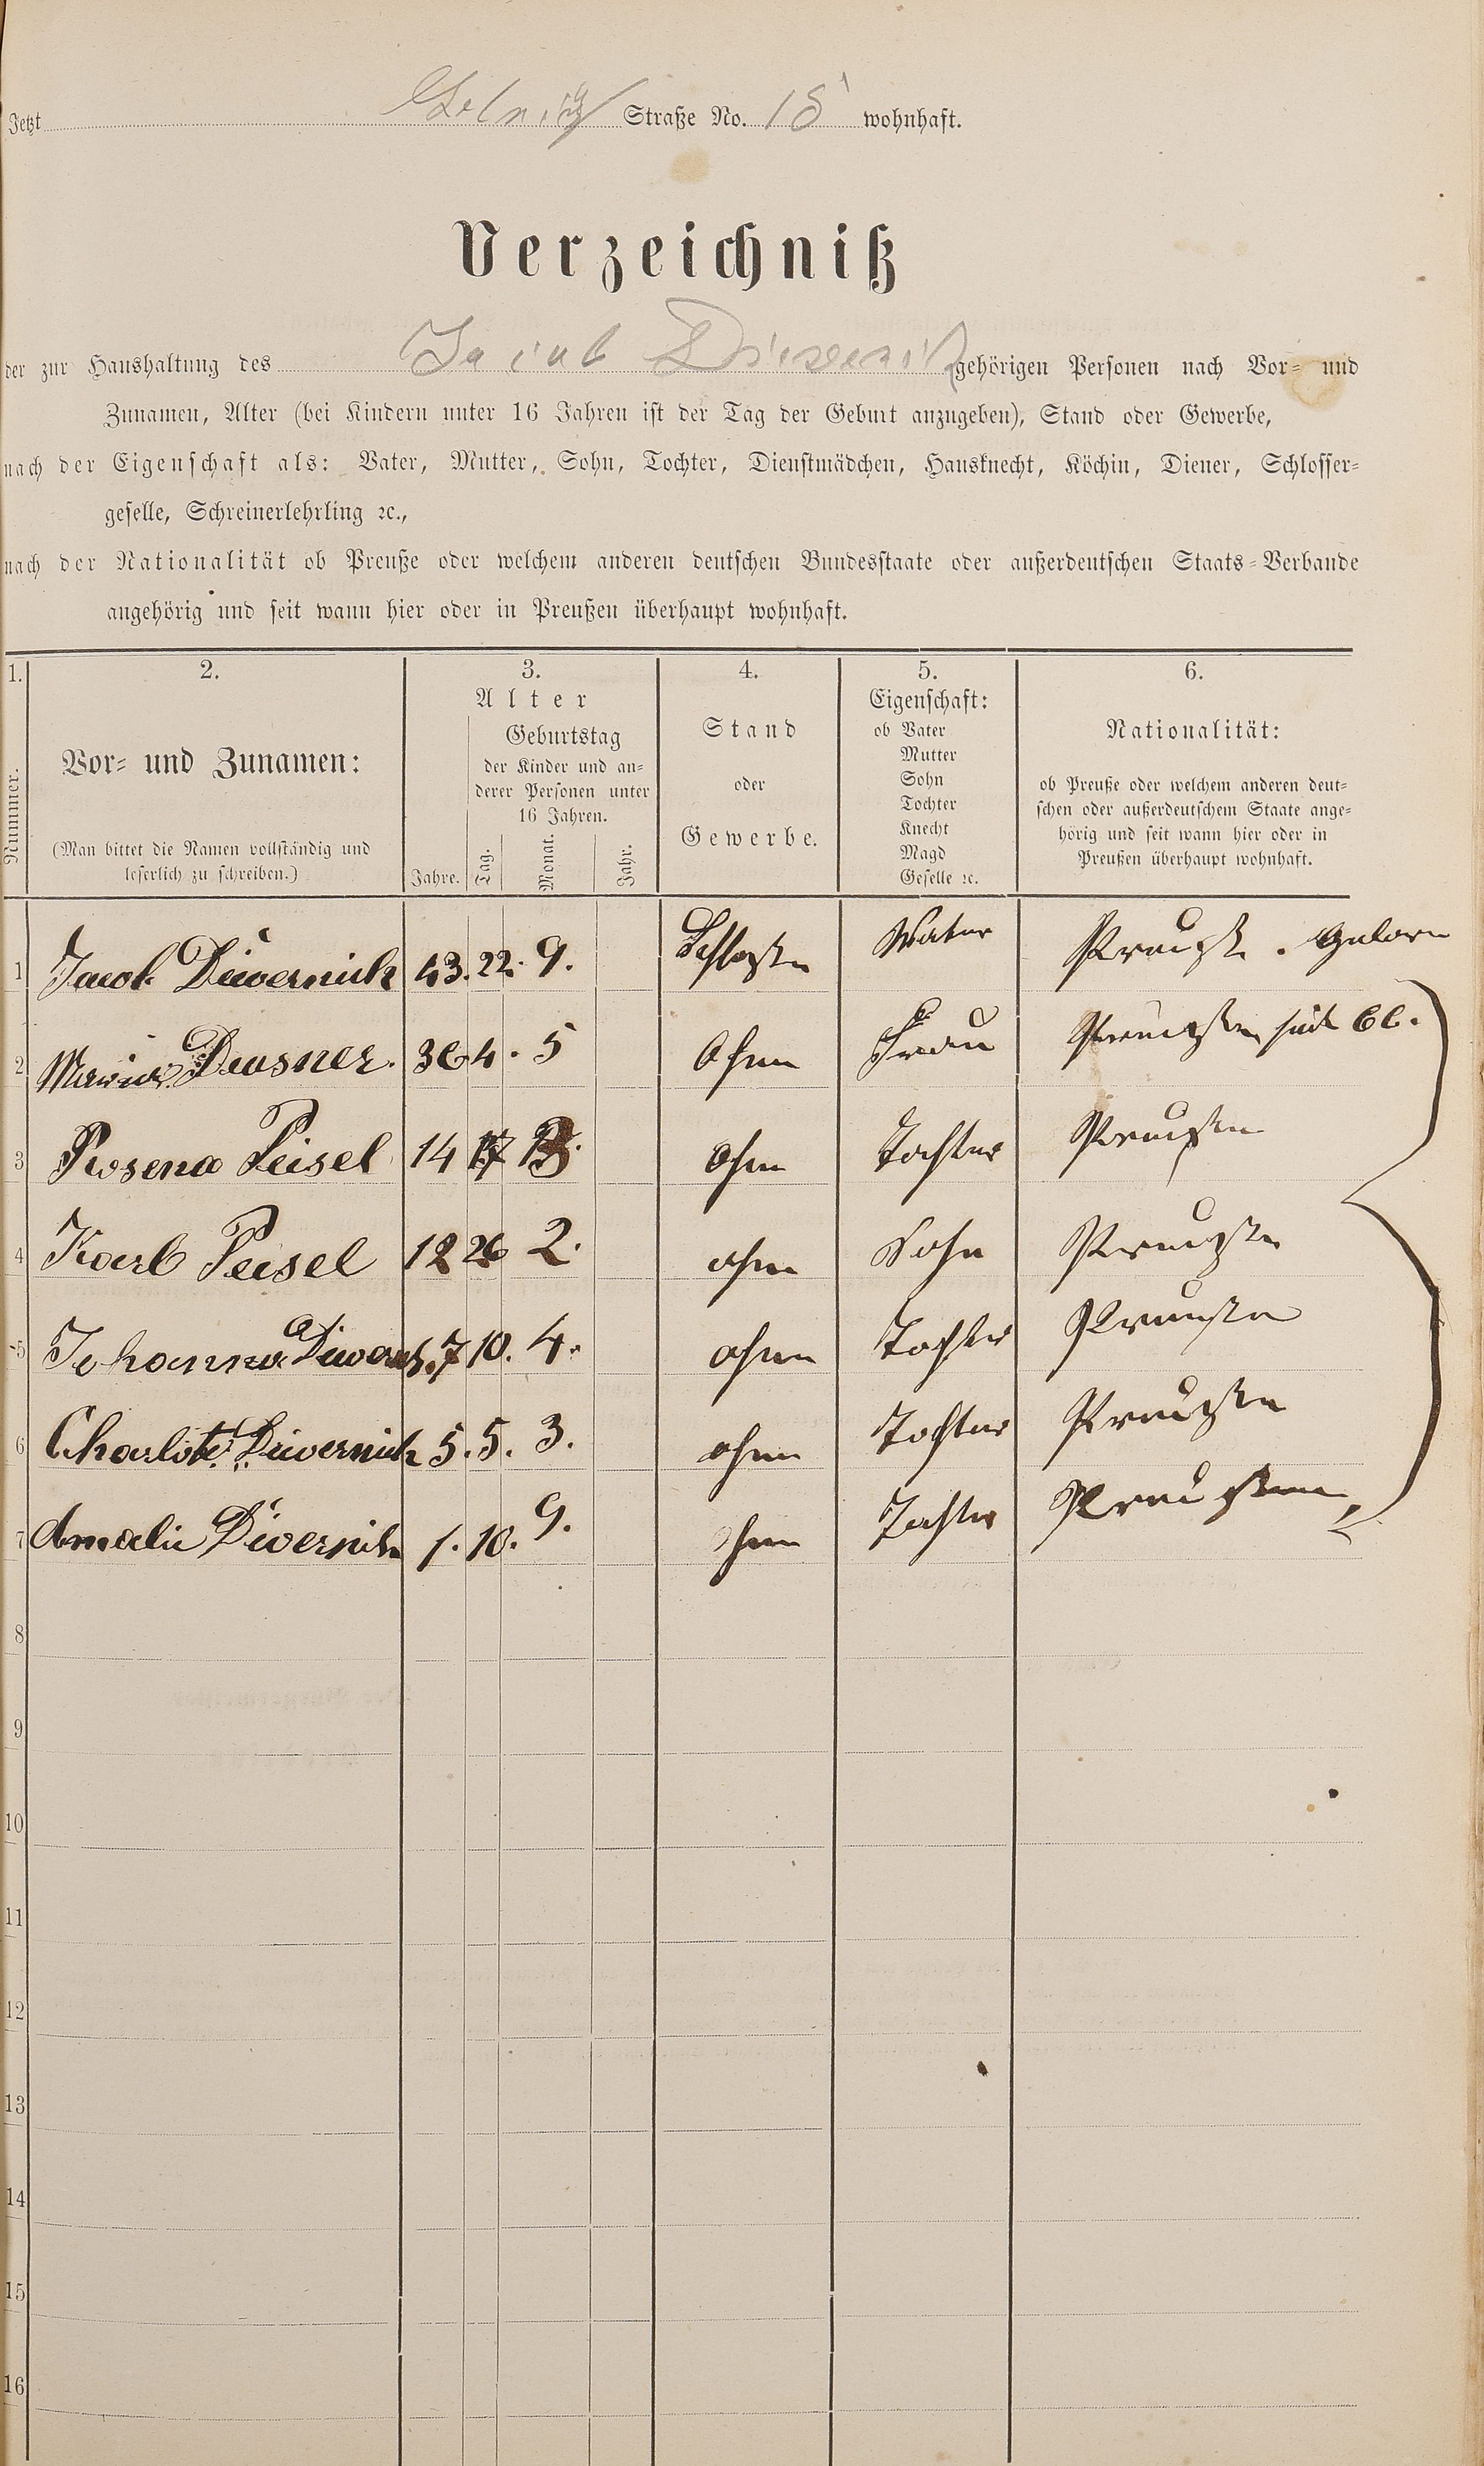 Jetzt Straße No. 18 wohnhaft.
Verzeichniß
der zur Haushaltung des Jacob gehörigen Personen nach Vor- und
Zunamen, Alter (bei Kindern unter 16 Jahren ist der Tag der Geburt anzugeben), Stand oder Gewerbe,
nach der Eigenschaft als: Vater, Mutter, Sohn, Tochter, Dienstmädchen, Hausknecht, Köchin, Diener, Schlosser-
geselle, Schreinerlehrling ꝛc.,
nach der Nationalität ob Preuße oder welchem anderen deutschen Bundesstaate oder außerdeutschen Staats-Verbande
angehörig und seit wann hier oder in Preußen überhaupt wohnhaft.
1. 2. 3. 4. 5. 6.
Nummer.
Vor- und Zunamen:
(Man bittet die Namen vollständig und
leserlich zu schreiben.)
Alter
Jahre.
Geburtstag
der Kinder und an-
derer Personen unter
16 Jahren.
Tag. Monat. Jahr.
Stand
oder
Gewerbe.
Eigenschaft:
ob Vater
Mutter
Sohn
Tochter
Knecht
Magd
Geselle ꝛc.
Nationalität:
ob Preuße oder welchem anderen deut-
schen oder außerdeutschem Staate ange-
hörig und seit wann hier oder in
Preußen überhaupt wohnhaft.
1 Jacob Düvernich 43. 22. 9. Vater Preuße. Geboren
2 Maria 36 4. 5 Ohne Frau Preußen seit 66.
3 Rosena Peisel 14 17 Ohne Tochter Preußen
4 Karl Peisel 12 26 2. ohne Sohn Preußen
5 Johanna 7 10. 4. ohne Tochter Preußen
6 Charlote Düvernich 5. 5. 3. ohne Tochter Preußen
7 Amalie Düvernich 1. 10. 9. ohne Tochter Preußen
8
9
10
11
12
13
14
15
16